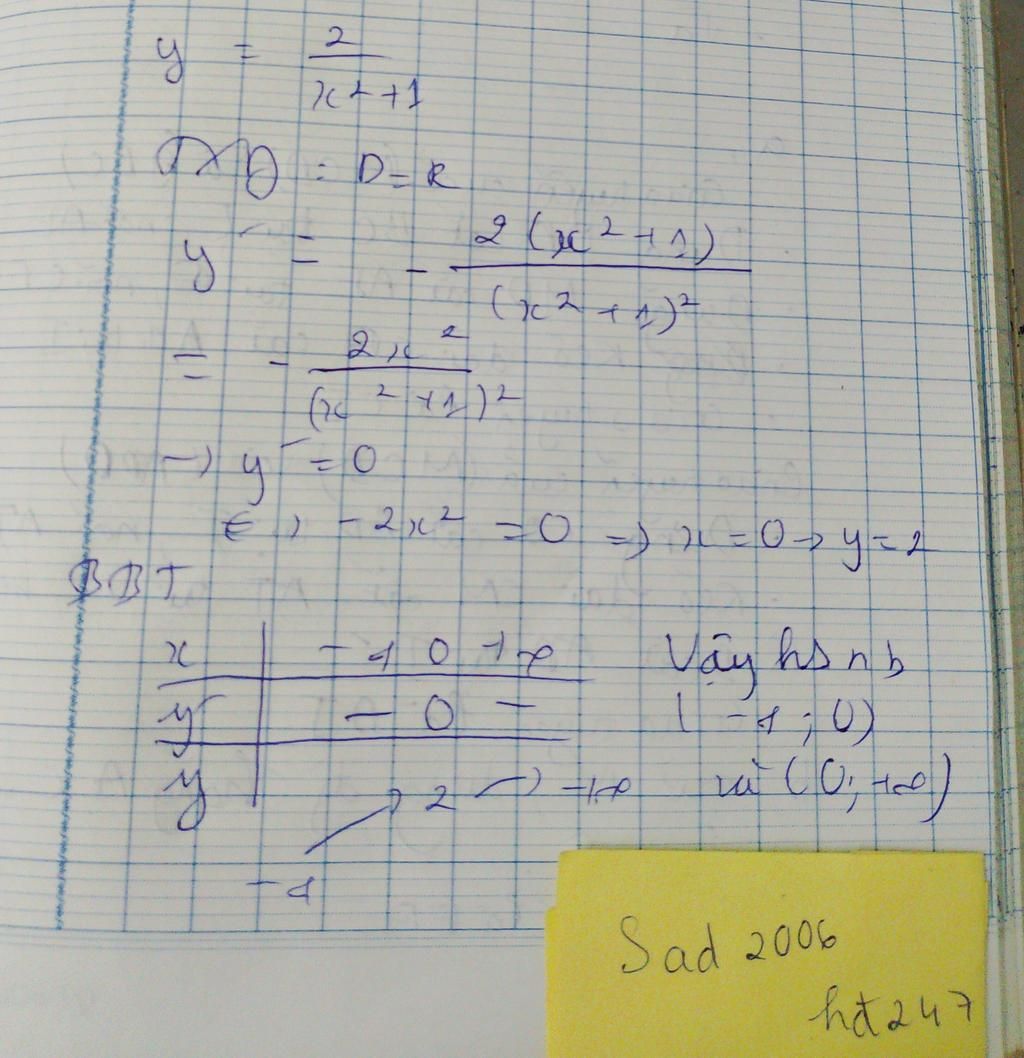 y = 2 / (x² + 1)
TXĐ : D = R
y' = - 2(x² + 1) / (x² + 1)²
= - 2x² / (x² + 1)²
→ y' = 0
<=> -2x² = 0 => x = 0 → y = 2
BBT
x | -1 0 +∞ Vậy hs n b
y' | - 0 - ( -1 ; 0)
y | 2 +∞ và (0; +∞)
-1
Sad 2006
hđ247